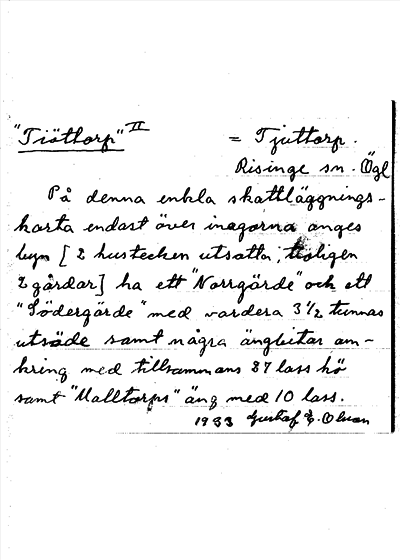 "Tiöttorp" II
= Tjuttorp.
Risinge sn. Ögl
På denna enkla skattläggnings-
karta endast över inagorna anges
byn [2 hustecken utsatta, troligen
2 gårdar] ha ett "Norrgärde" och ett
"Södergärde" med vardera 3 1/2 tunnas
utsäde samt några ängbitar om-
kring med tillsammans 87 lass hö
samt "Malltorps" äng med 10 lass.
1933 Gustaf E. Olsson